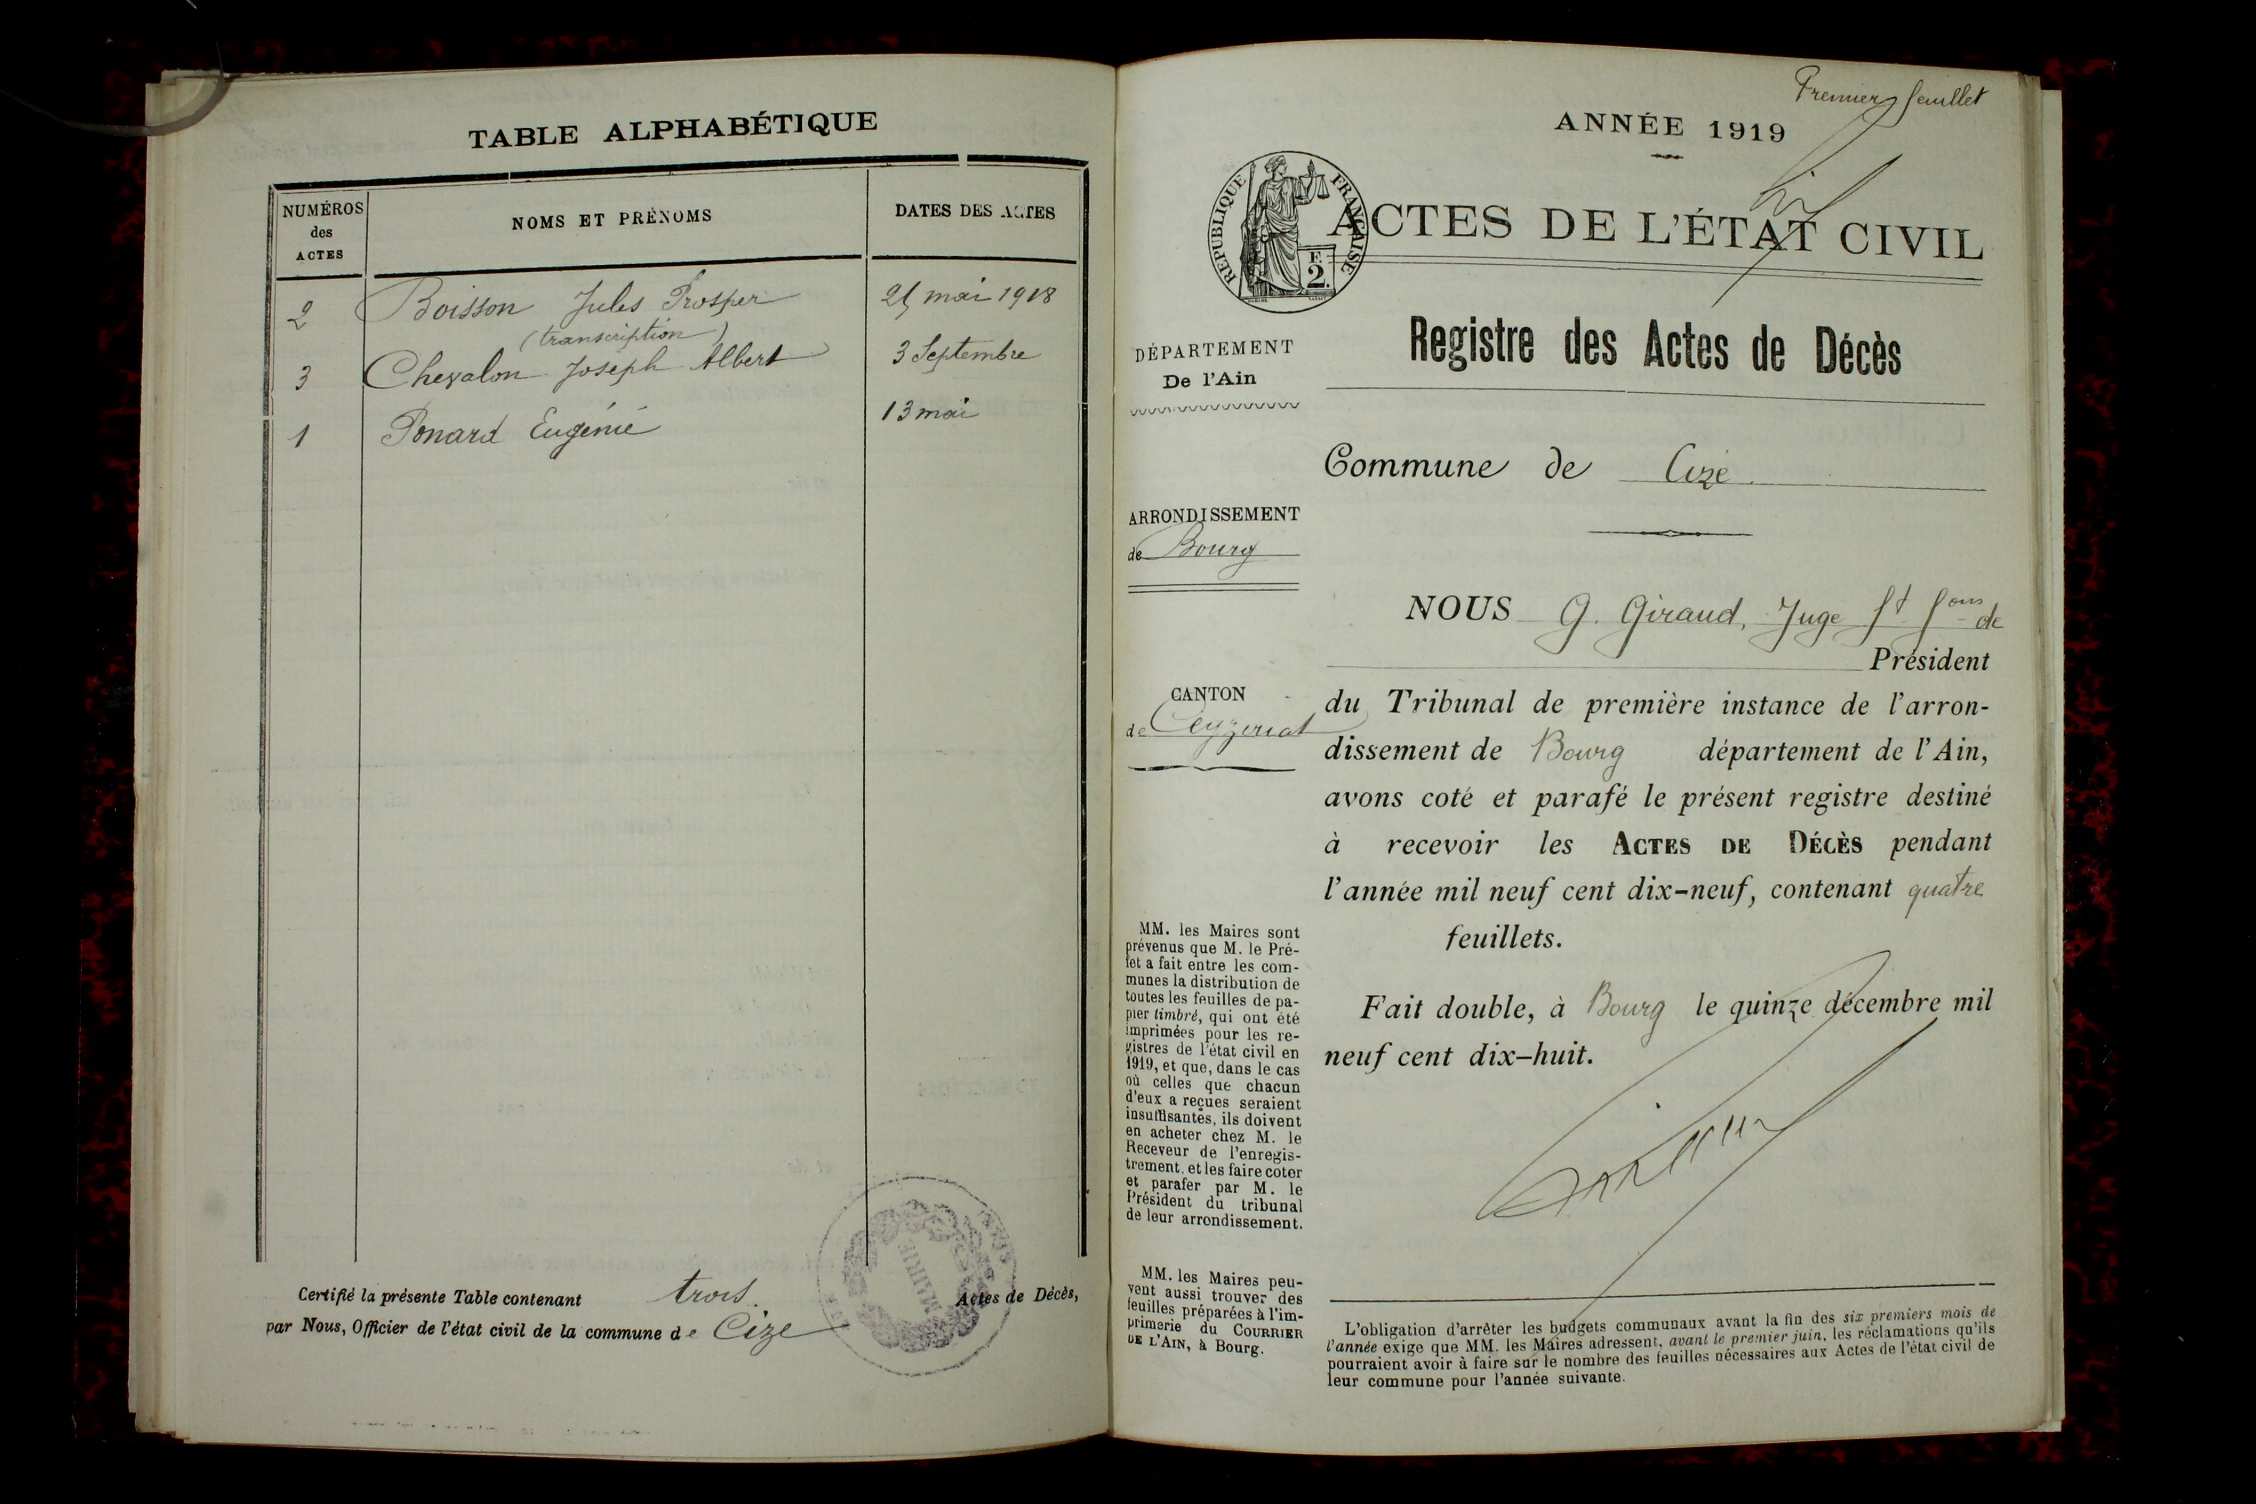 TABLE ALPHABÉTIQUE
NUMÉROS
des
ACTES
NOMS ET PRÉNOMS
DATES DES ACTES
2 Boisson Jules Prosper 25 mai 1918
(transcription)
3 Chevalon Joseph Albert 3 Septembre
1 Ponard Eugénie 13 mai
Certifié la présente Table contenant trois Actes de Décès,
par Nous, Officier de l'état civil de la commune de Cize
MAIRIE
Premier feuillet
ANNÉE 1919
RÉPUBLIQUE FRANÇAISE
F.
2.
ACTES DE L'ÉTAT CIVIL
Registre des Actes de Décès
DÉPARTEMENT
De l'Ain
Commune de Cize
ARRONDISSEMENT
de Bourg
CANTON
de Ceyzeriat
NOUS G. Giraud, Juge ft fons de
Président
du Tribunal de première instance de l'arron-
dissement de Bourg département de l'Ain,
avons coté et parafé le présent registre destiné
à recevoir les ACTES DE DÉCÈS pendant
l'année mil neuf cent dix-neuf, contenant quatre
feuillets.
Fait double, à Bourg le quinze décembre mil
neuf cent dix-huit.
MM. les Maires sont
prévenus que M. le Pré-
fet a fait entre les com-
munes la distribution de
toutes les feuilles de pa-
pier timbré, qui ont été
imprimées pour les re-
gistres de l'état civil en
1919, et que, dans le cas
où celles que chacun
d'eux a reçues seraient
insuffisantes, ils doivent
en acheter chez M. le
Receveur de l'enregis-
trement, et les faire coter
et parafer par M. le
Président du tribunal
de leur arrondissement.
MM. les Maires peu-
vent aussi trouver des
feuilles préparées à l'im-
primerie du COURRIER
DE L'AIN, à Bourg.
L'obligation d'arrêter les budgets communaux avant la fin des six premiers mois de
l'année exige que MM. les Maires adressent, avant le premier juin, les réclamations qu'ils
pourraient avoir à faire sur le nombre des feuilles nécessaires aux Actes de l'état civil de
leur commune pour l'année suivante.